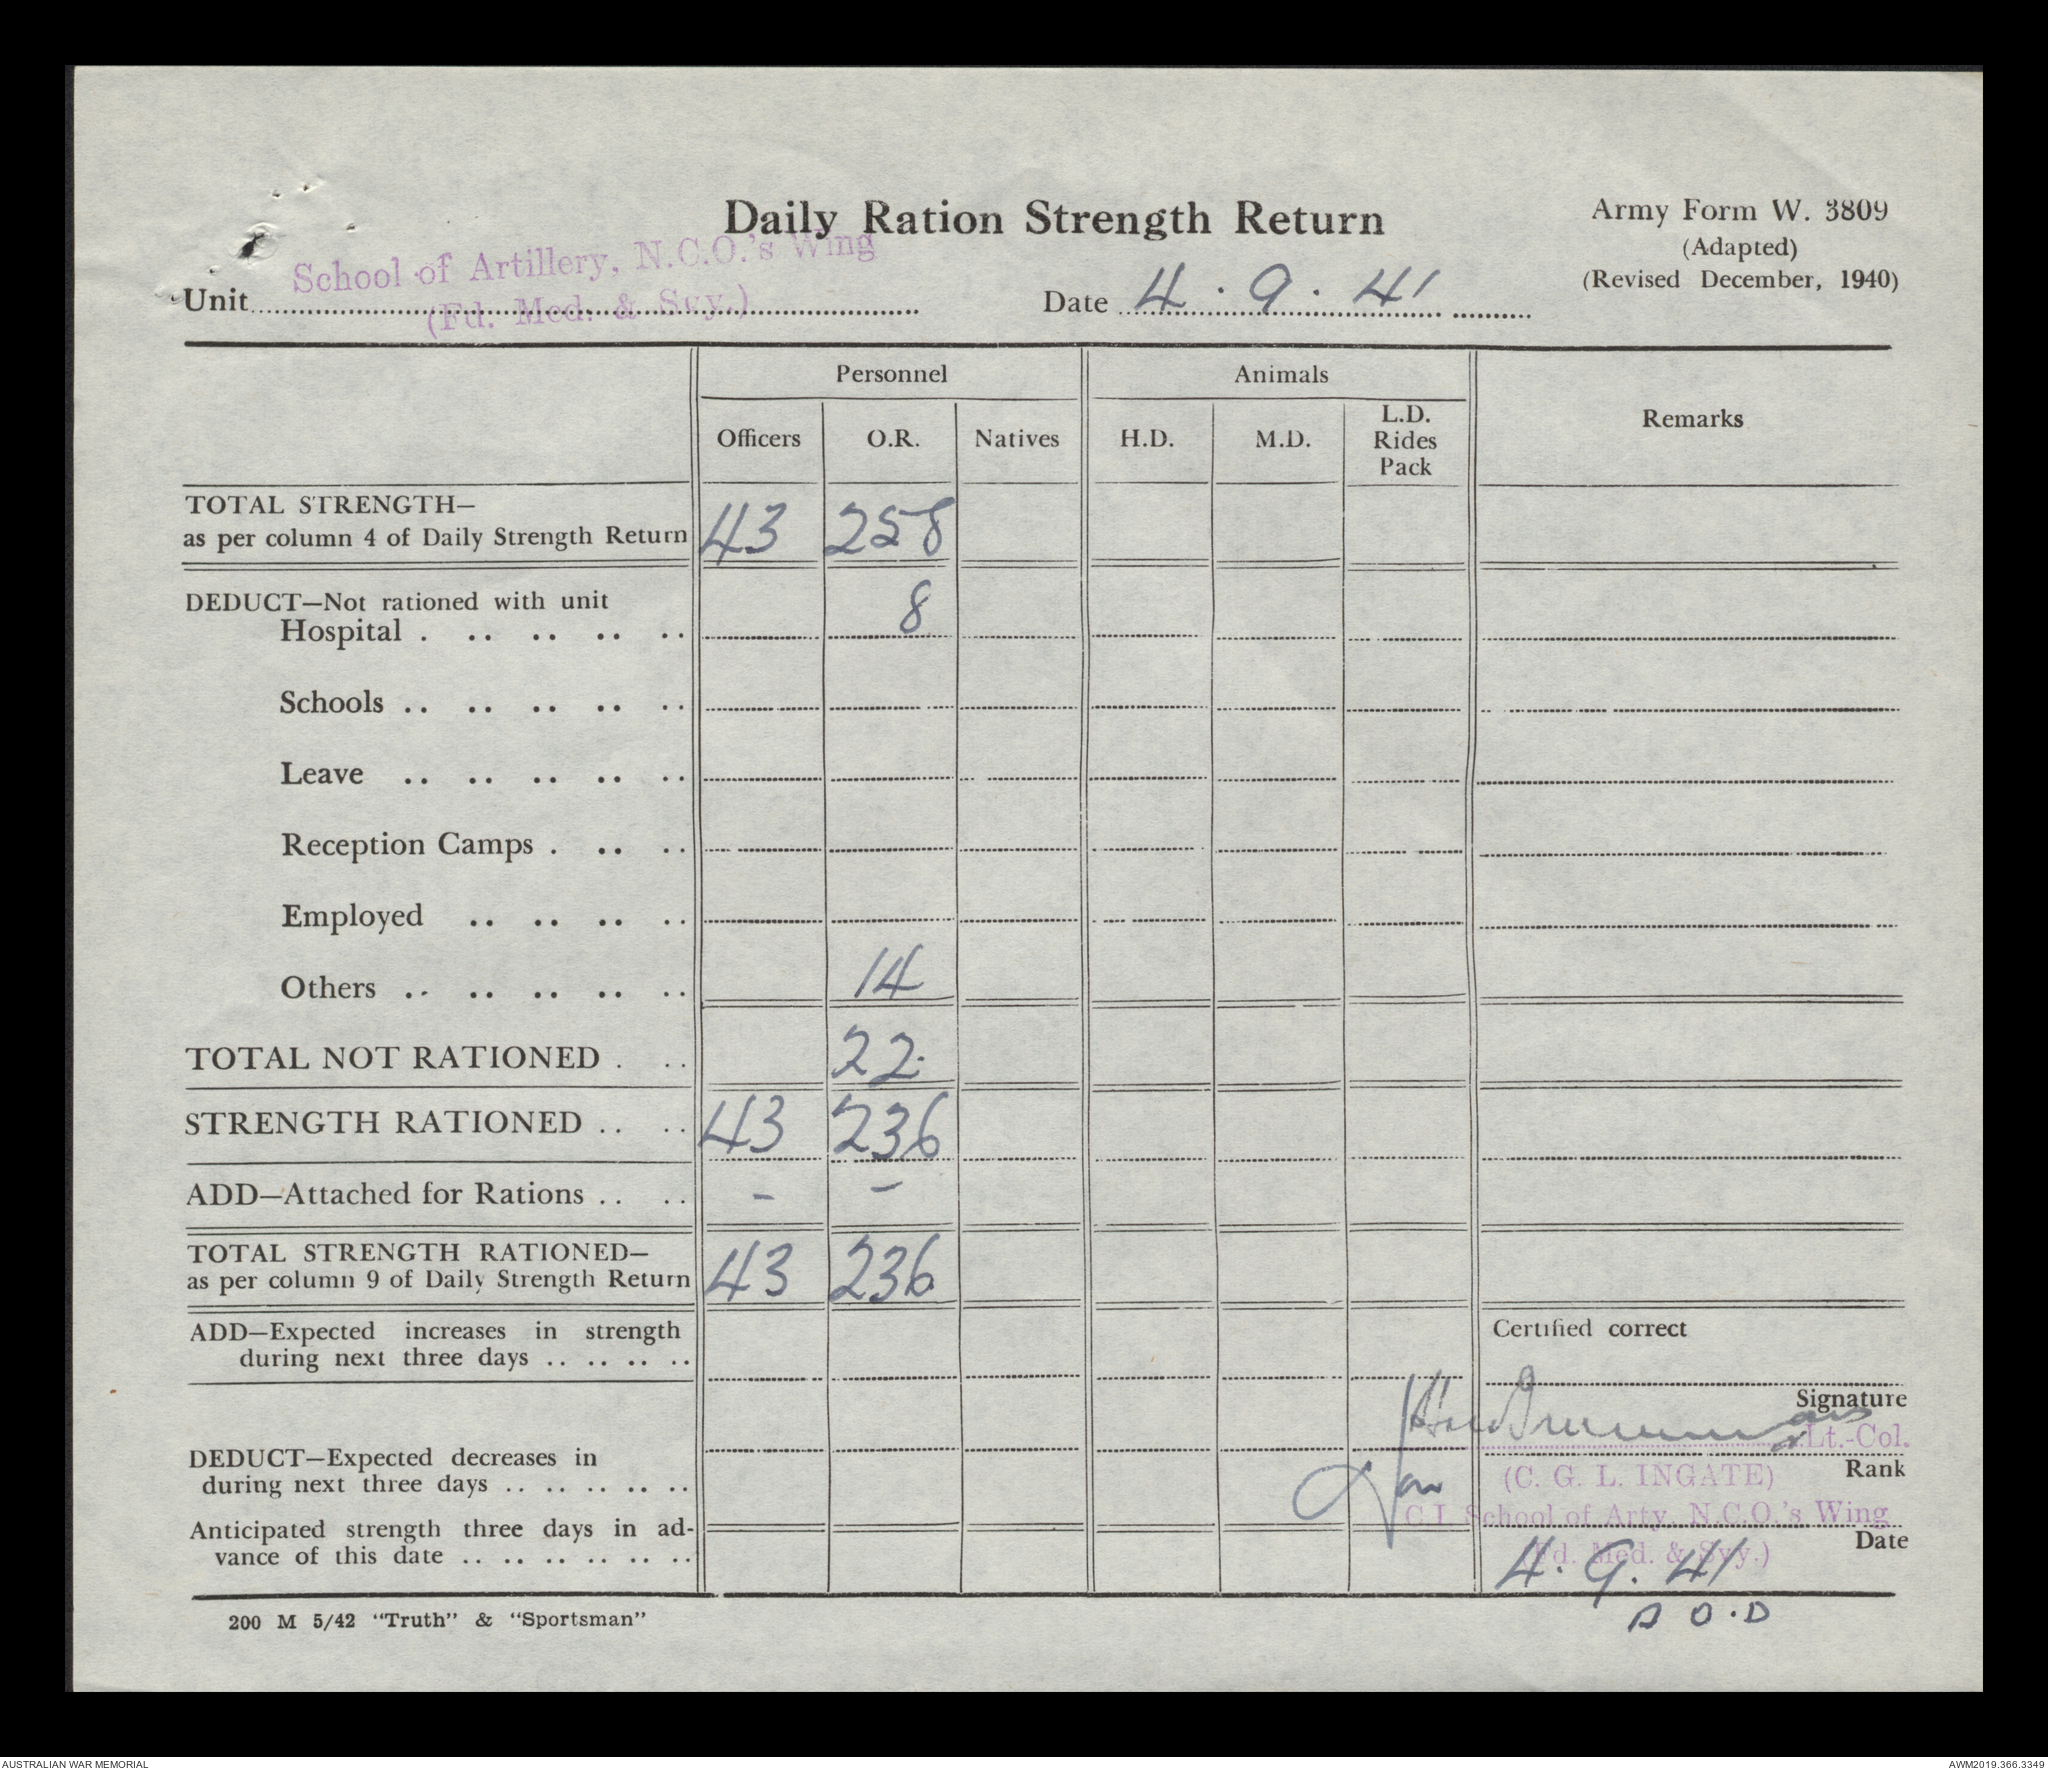 Daily Ration Strength Return
Army Form W. 3809
(Adapted)
(Revised December, 1940)
School of Artillery, N.C.O.'s Wing
(Fd. Med. & Svy.)
Unit
Date 4 . 9 . 41
Personnel
Animals
Remarks
Officers O.R. Natives H.D. M.D. L.D. Rides Pack
TOTAL STRENGTH—
as per column 4 of Daily Strength Return 43 258
DEDUCT—Not rationed with unit
Hospital . .. .. .. .. 8
Schools .. .. .. .. ..
Leave .. .. .. .. ..
Reception Camps . .. ..
Employed .. .. .. ..
Others .. .. .. .. .. 14
TOTAL NOT RATIONED . .. 22.
STRENGTH RATIONED .. .. 43 236
ADD—Attached for Rations .. .. – –
TOTAL STRENGTH RATIONED—
as per column 9 of Daily Strength Return 43 236
ADD—Expected increases in strength
during next three days .. .. .. ..
Certified correct
Signature
Lt.-Col.
DEDUCT—Expected decreases in
during next three days .. .. .. .. ..
Rank
(C. G. L. INGATE)
C.I. School of Arty. N.C.O.'s Wing
(Fd. Med. & Svy.)
Anticipated strength three days in ad-
vance of this date .. .. .. .. .. .. ..
Date
4. 9. 41
200 M 5/42 "Truth" & "Sportsman"
AUSTRALIAN WAR MEMORIAL
AWM2019.366.3349